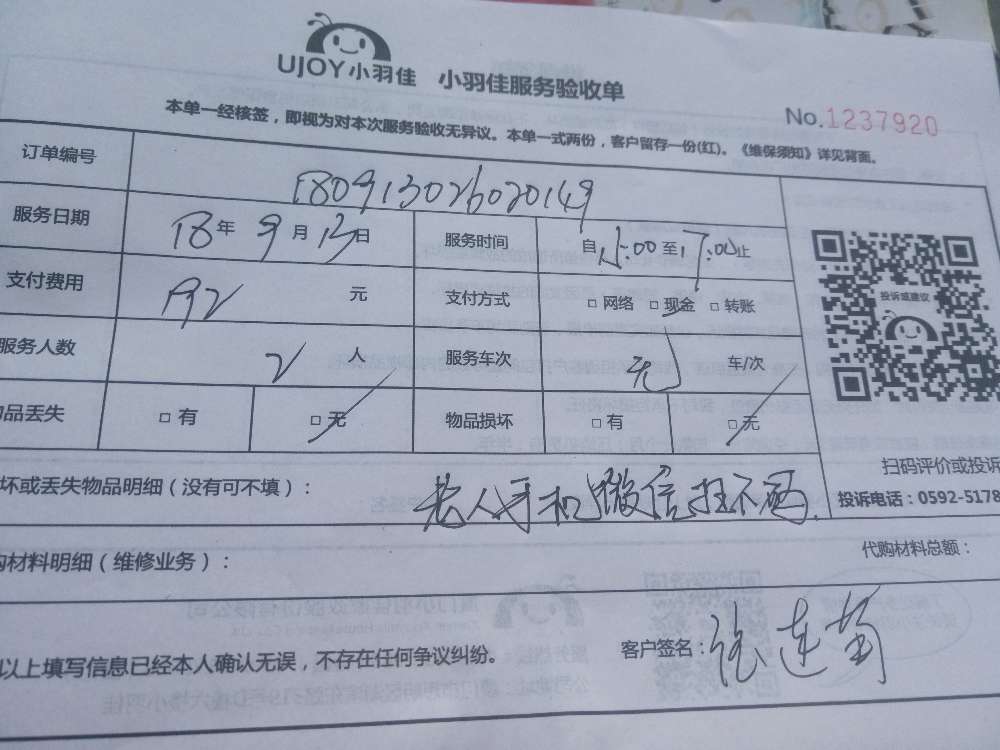 UJOY小羽佳 小羽佳服务验收单
No.1237920
本单一经核签，即视为对本次服务验收无异议。本单一式两份，客户留存一份(红)。《维保须知》详见背面。
订单编号 180913026020149
服务日期 18年9月13日 服务时间 自 :00至1 :00止
支付费用 元 支付方式 □网络 □现金 □转账
投诉或建议
服务人数 2人 服务车次 无 车/次
品丢失 □有 □无 物品损坏 □有 □无
扫码评价或投诉
坏或丢失物品明细（没有可不填）： 老人手机微信扫不码
投诉电话：0592-5178
材料明细（维修业务）： 代购材料总额：
以上填写信息已经本人确认无误，不存在任何争议纠纷。 客户签名：